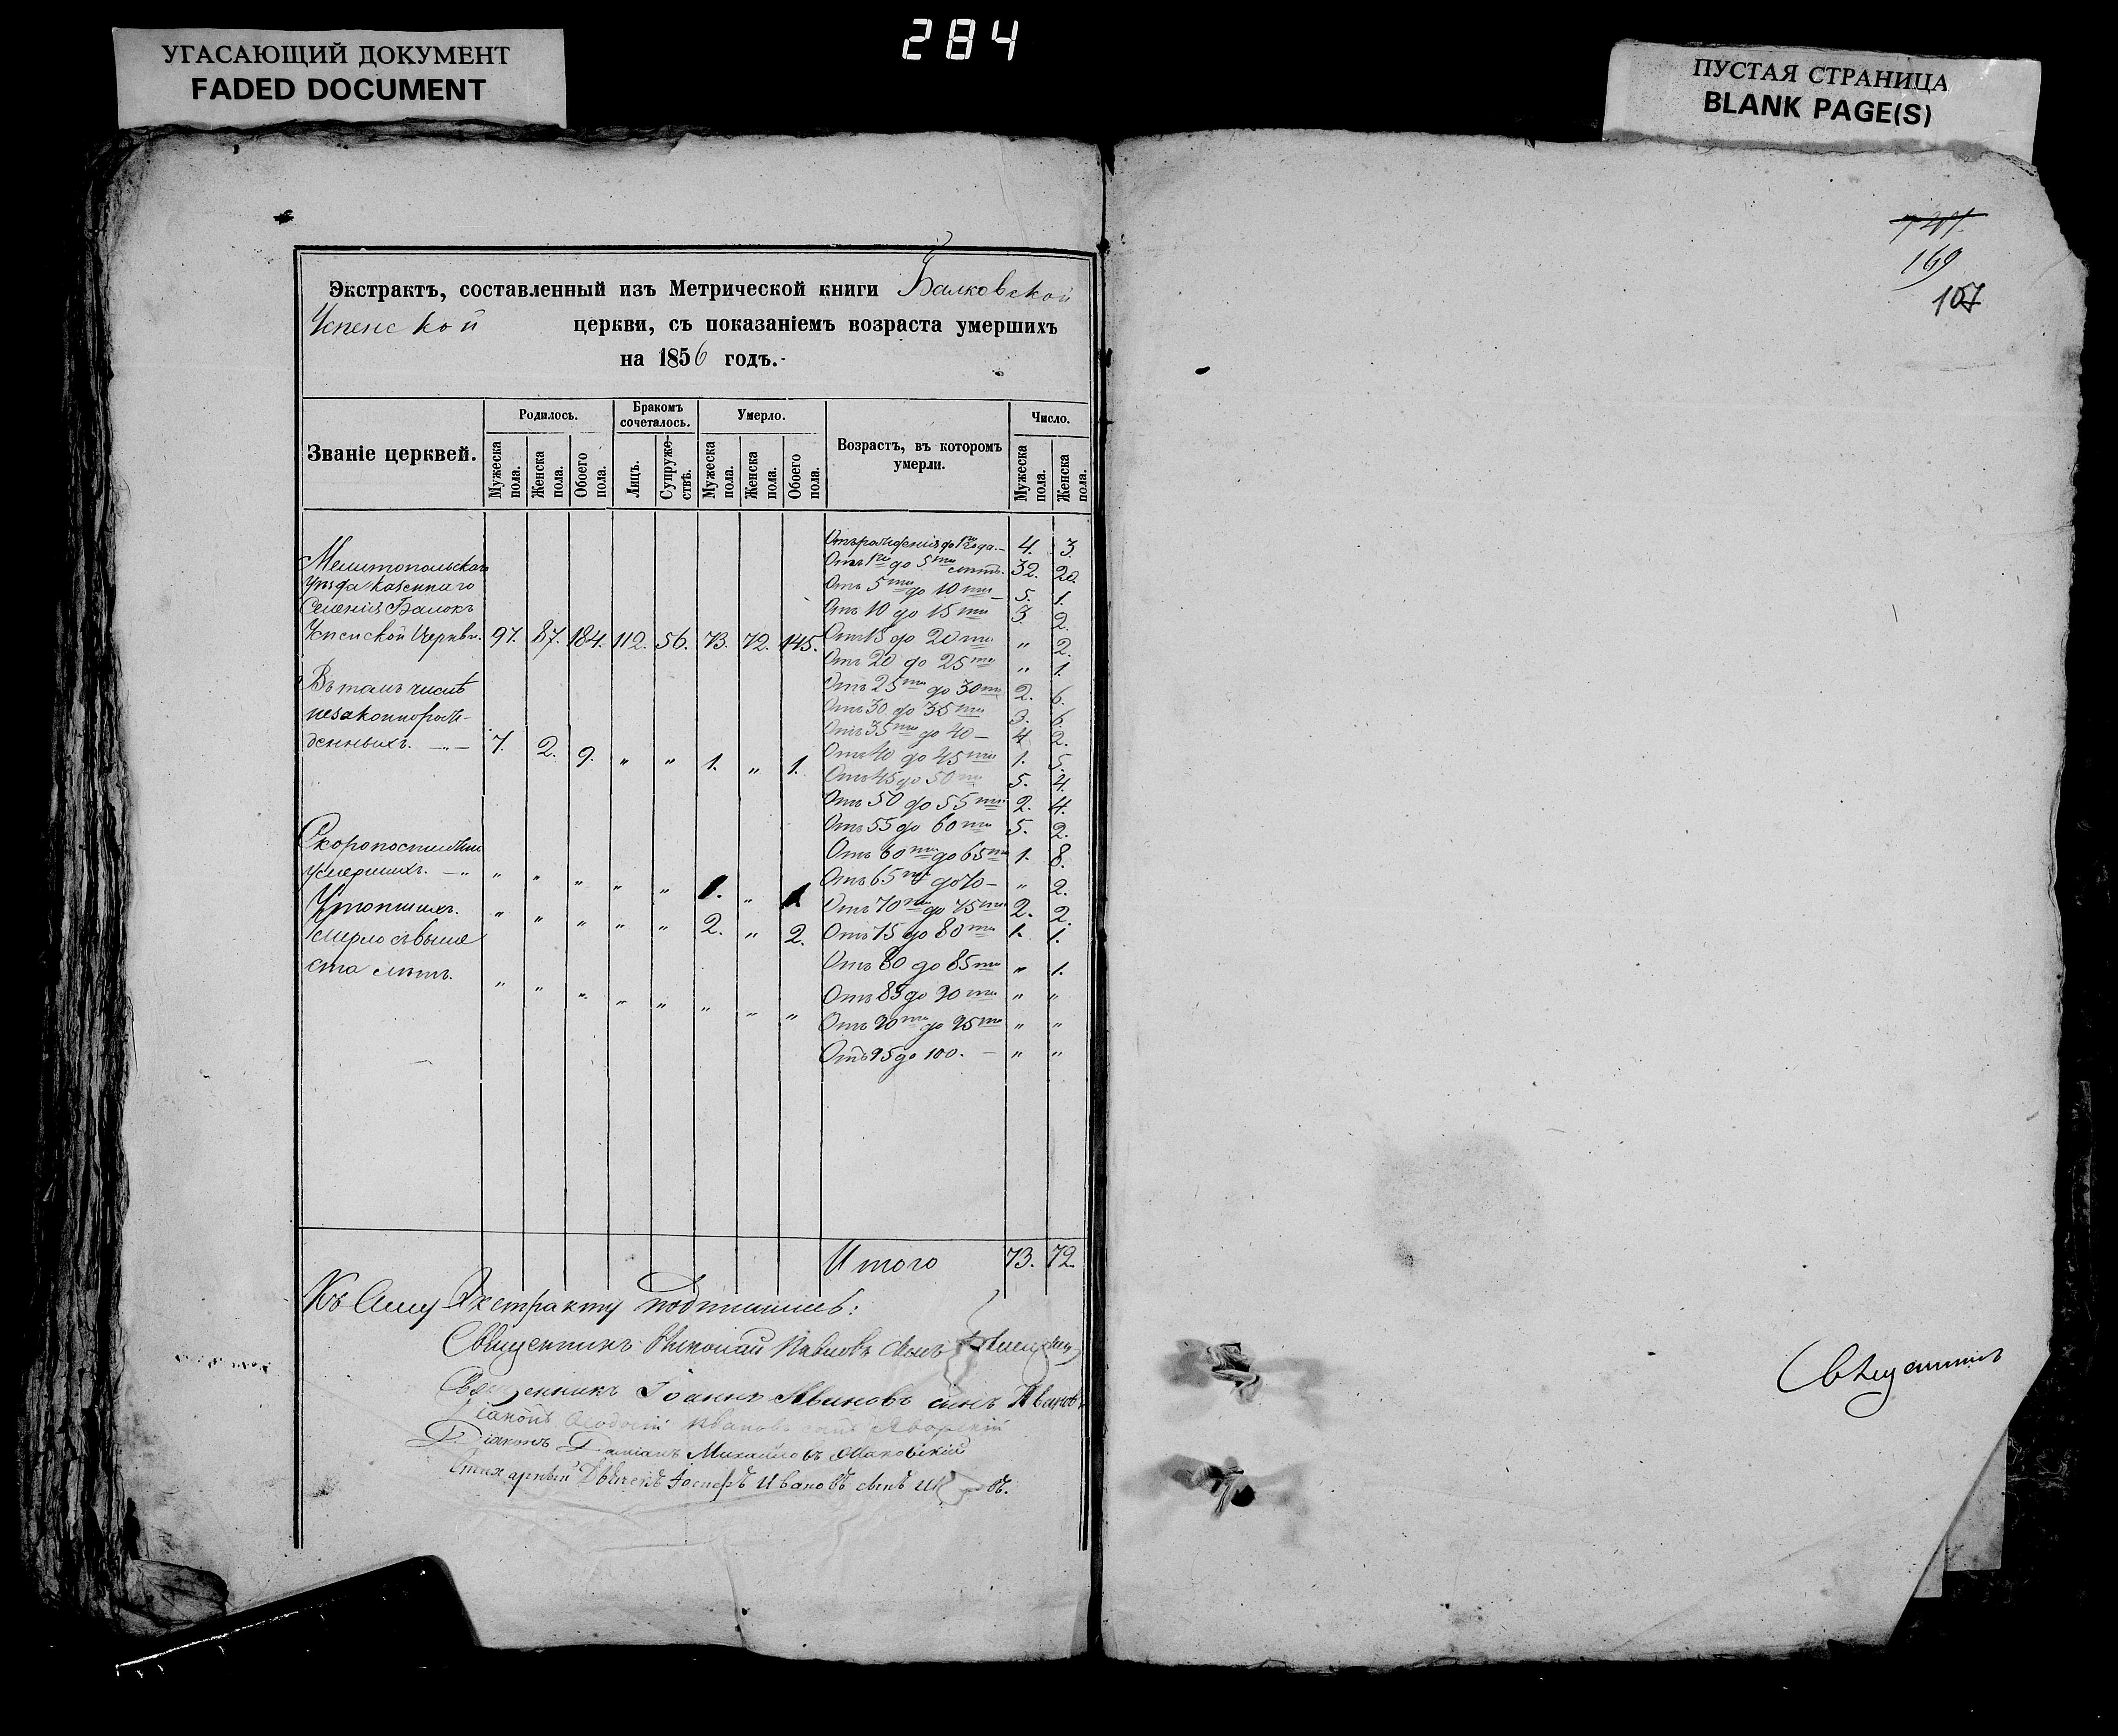 284
УГАСАЮЩИЙ ДОКУМЕНТ
FADED DOCUMENT
ПУСТАЯ СТРАНИЦА
BLANK PAGE(S)
169
107
Экстрактъ, составленный изъ Метрической книги Балковской
Успенской церкви, съ показаніемъ возраста умершихъ
на 1856 годъ.
Званіе церквей.
Родилось.
Бракомъ сочеталось.
Умерло.
Возрастъ, въ которомъ умерли.
Число.
Мужеска пола.
Женска пола.
Обоего пола.
Лицъ.
Супружествъ.
Мужеска пола.
Женска пола.
Обоего пола.
Мужеска пола.
Женска пола.
Мелитопольскаго
уѣзда казеннаго
Селенія Балокъ
Успенской Церкви. 97. 87. 184. 112. 56. 73. 72. 145.
Въ томъ числѣ
незаконнорож-
денныхъ. 7. 2. 9. " " 1. " 1.
Скоропостижно
умершихъ. " " " " " 1. " 1.
Утопшихъ. " " " " " 2. " 2.
Умерло свыше
ста лѣтъ. " " " " " " " "
Отъ рожденія до 1го года. 4. 3.
Отъ 1го до 5ти лѣтъ. 32. 20.
Отъ 5ти до 10ти 5. 1.
Отъ 10 до 15ти 3. 2.
Отъ 15 до 20ти " 2.
Отъ 20 до 25ти " 1.
Отъ 25ти до 30ти 2. 6.
Отъ 30 до 35ти 3. 6.
Отъ 35ти до 40 4. 2.
Отъ 40 до 45ти 1. 5.
Отъ 45 до 50ти 5. 4.
Отъ 50 до 55ти 2. 4.
Отъ 55 до 60ти 5. 2.
Отъ 60ти до 65ти 1. 8.
Отъ 65ти до 70 " 2.
Отъ 70ти до 75ти 2. 2.
Отъ 75 до 80ти 1. 1.
Отъ 80 до 85ти " 1.
Отъ 85 до 90ти " "
Отъ 90ти до 95ти " "
Отъ 95 до 100. " "
Итого 73. 72.
Къ Сему Экстракту подписались:
Священникъ Николай Павловъ сынъ
Священникъ Іоаннъ сынъ
Діаконъ Ѳеодосій Ивановъ сынъ Яворскій
Діаконъ Даміанъ Михайловъ
Стихарный Дьячекъ Іосифъ Ивановъ сынъ
Священникъ